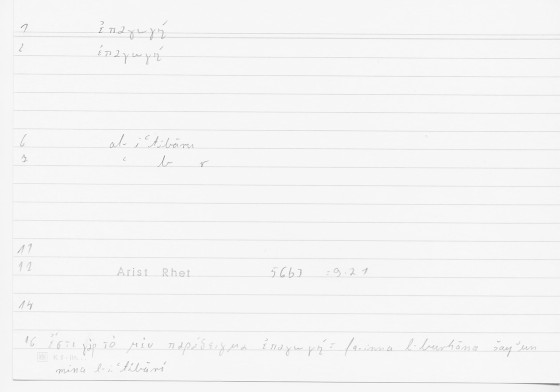 1 ἐπαγωγή
2 ἐπαγωγή
6 al-iʿtibāru
9 ʿ b r
11
12 Arist Rhet 56b3 :9.21
14
16 ἔστι γὰρ τὸ μὲν παράδειγμα ἐπαγωγή: fa-inna l-burhāna šayʾun
mina l-iʿtibāri